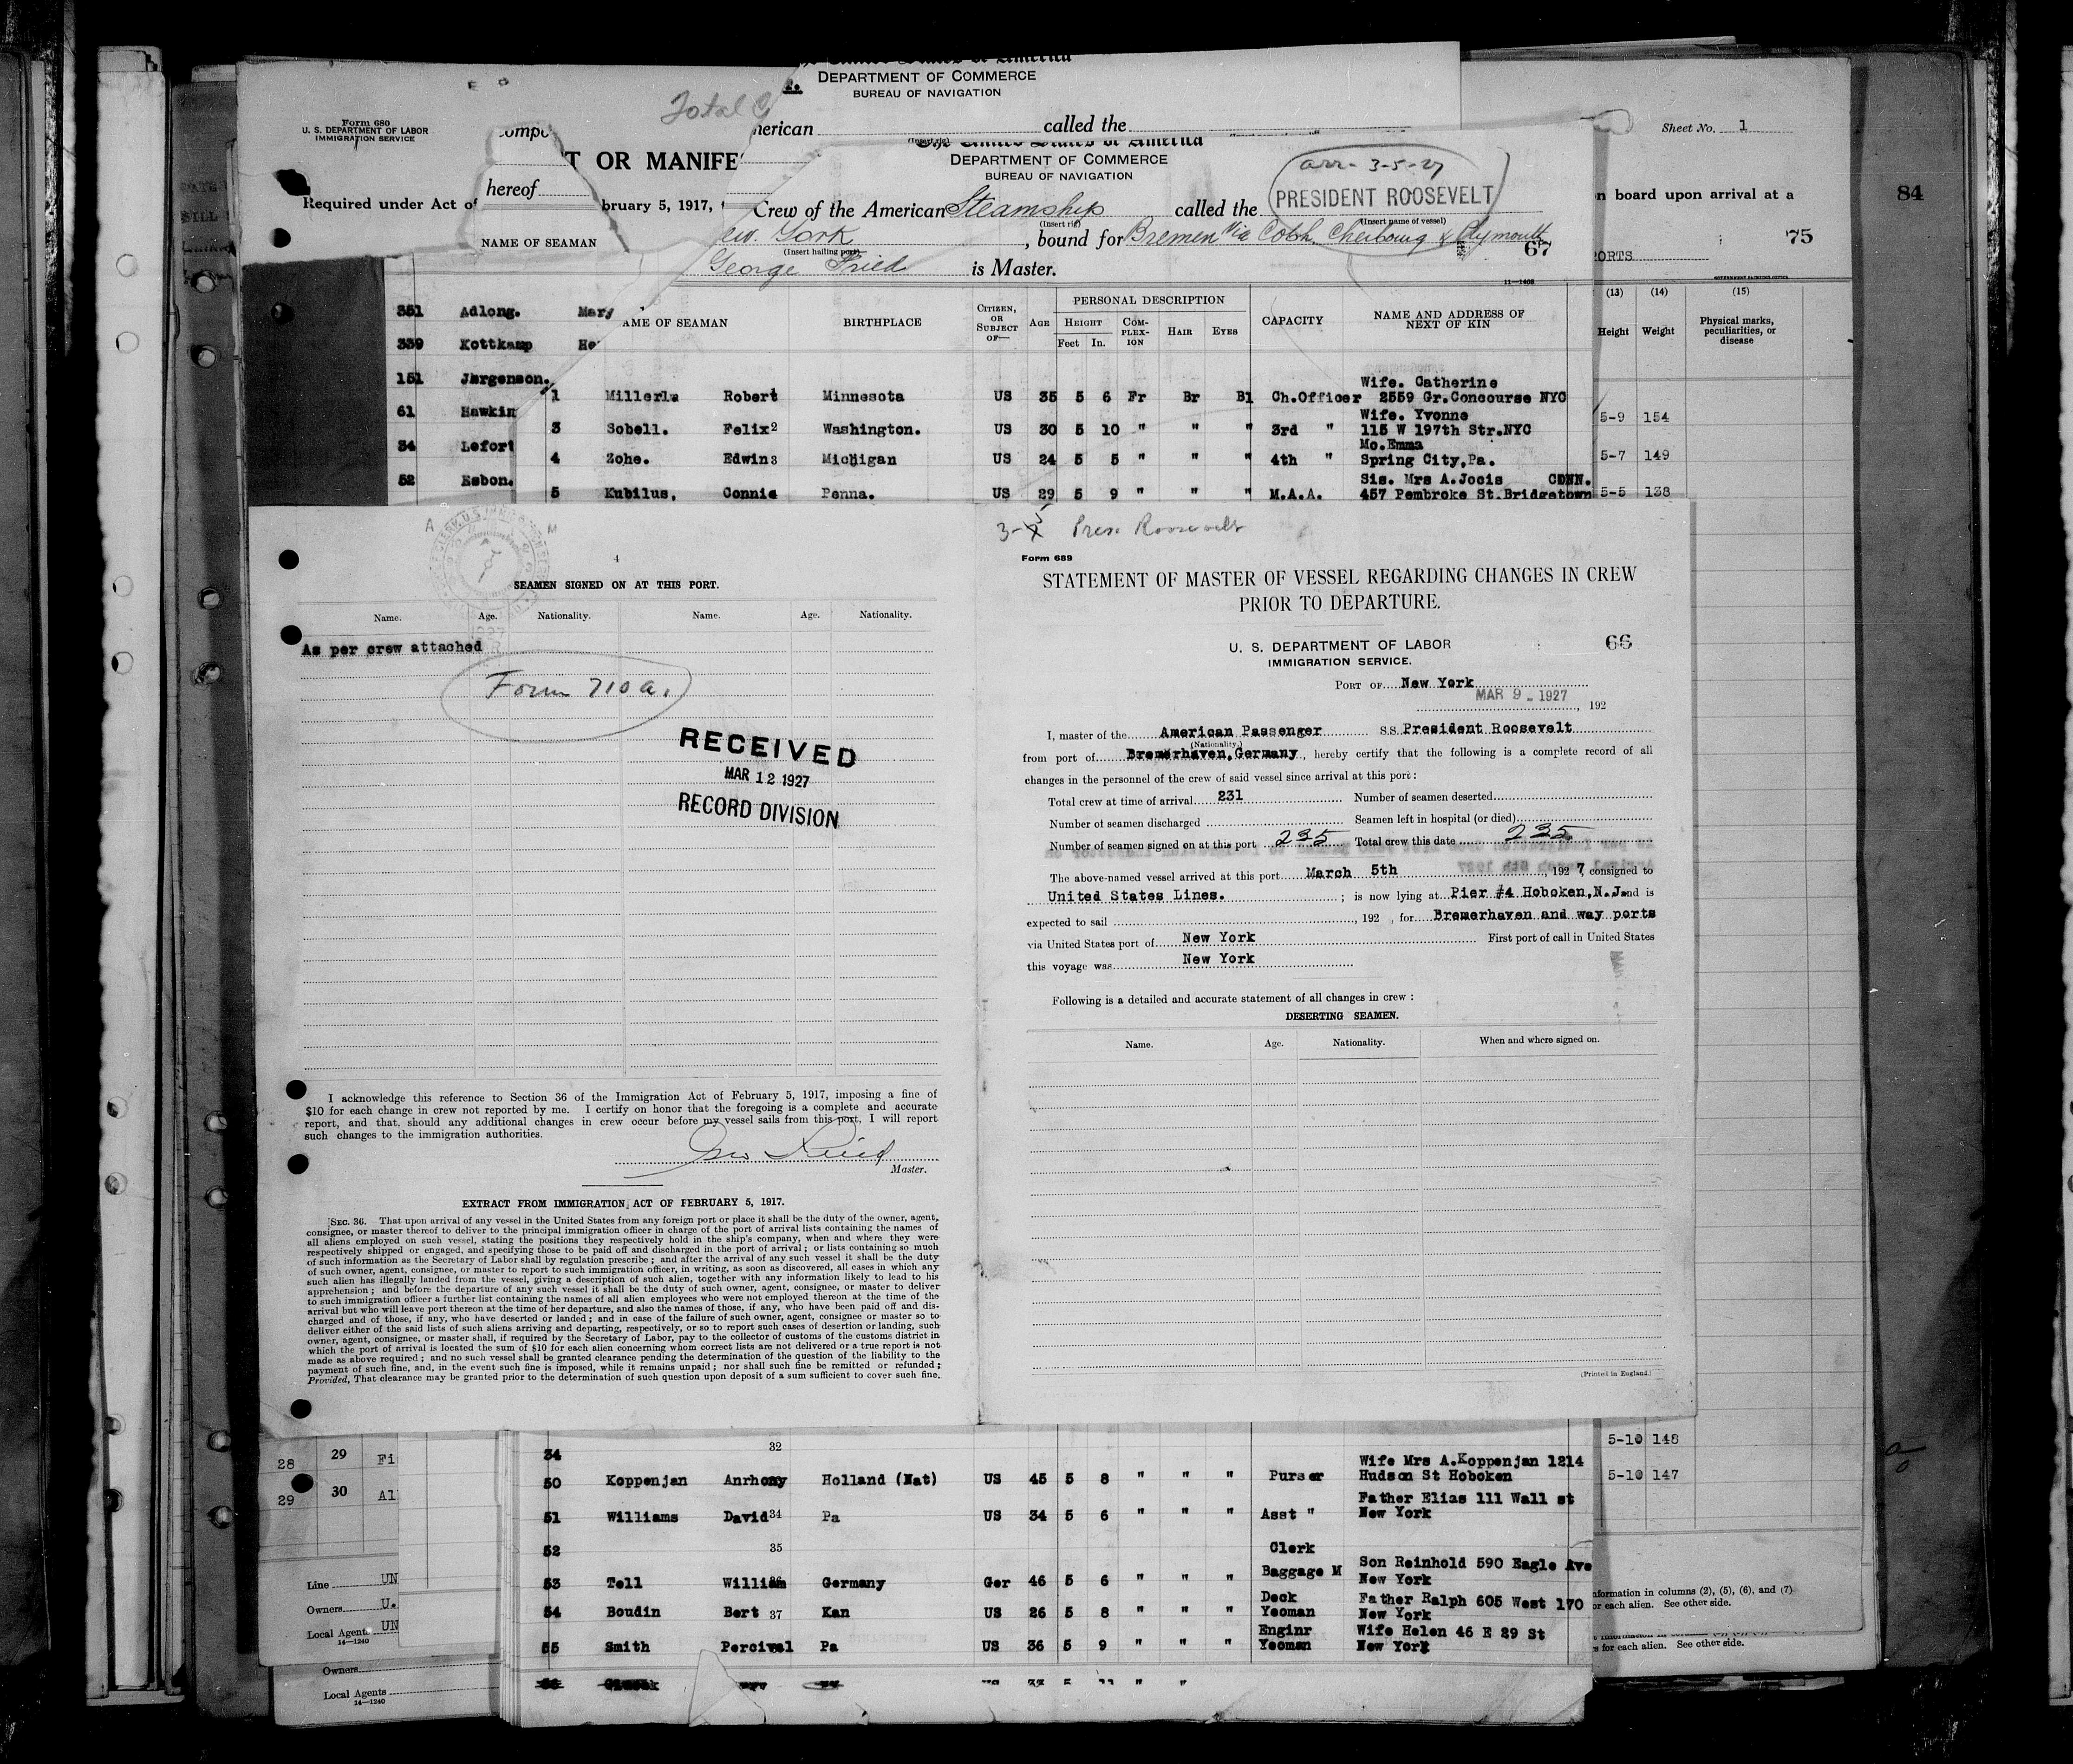 DEPARTMENT OF COMMERCE
BUREAU OF NAVIGATION
Total
Form 680
U. S. DEPARTMENT OF LABOR
IMMIGRATION SERVICE
nerican called the
Sheet No. 1
T OR MANIFE
DEPARTMENT OF COMMERCE
BUREAU OF NAVIGATION
arr- 3-5-27
hereof
PRESIDENT ROOSEVELT
n board upon arrival at a
84
Required under Act of
bruary 5, 1917,
Crew of the American Steamship called the
(Insert rig)
(Insert name of vessel)
NAME OF SEAMAN
ew York, bound for Bremen via Cobh. Cherbourg & Plymouth
67
75
ORTS
(Insert hailing port)
George Fried is Master.
11—1408
GOVERNMENT PRINTING OFFICE
351 Adlong. Mary
339 Kottkamp He
151 Jørgenson.
61 Hawkin
34 Lefort
52 Esbon.
AME OF SEAMAN BIRTHPLACE CITIZEN, OR SUBJECT OF— AGE PERSONAL DESCRIPTION CAPACITY NAME AND ADDRESS OF NEXT OF KIN
HEIGHT COM-PLEX-ION HAIR EYES
Feet In.
(13) (14) (15)
Height Weight Physical marks, peculiarities, or disease
Wife. Catherine
1 Robert Minnesota US 35 5 6 Fr Br Bl Ch.Officer 2559 Gr.Concourse NYC
Wife. Yvonne
3 Sobell. Felix 2 Washington. US 30 5 10 " " " 3rd " 115 W 197th Str.NYC
Mo.Emma
4 Zohe. Edwin 3 Michigan US 24 5 5 " " " 4th " Spring City,Pa.
Sis. Mrs A.Jocis CONN.
5 Kubilus, Connie Penna. US 29 5 9 " " " M.A.A. 457 Pembroke St.Bridgetown
5-9 154
5-7 149
5-5 138
A M
4
SEAMEN SIGNED ON AT THIS PORT.
Name. Age. Nationality. Name. Age. Nationality.
As per crew attached
Form 710a.
RECEIVED
MAR 12 1927
RECORD DIVISION
I acknowledge this reference to Section 36 of the Immigration Act of February 5, 1917, imposing a fine of
$10 for each change in crew not reported by me. I certify on honor that the foregoing is a complete and accurate
report, and that, should any additional changes in crew occur before my vessel sails from this port, I will report
such changes to the immigration authorities.
Geo Fried
Master.
EXTRACT FROM IMMIGRATION ACT OF FEBRUARY 5, 1917.
SEC. 36. That upon arrival of any vessel in the United States from any foreign port or place it shall be the duty of the owner, agent,
consignee, or master thereof to deliver to the principal immigration officer in charge of the port of arrival lists containing the names of
all aliens employed on such vessel, stating the positions they respectively hold in the ship's company, when and where they were
respectively shipped or engaged, and specifying those to be paid off and discharged in the port of arrival; or lists containing so much
of such information as the Secretary of Labor shall by regulation prescribe; and after the arrival of any such vessel it shall be the duty
of such owner, agent, consignee, or master to report to such immigration officer, in writing, as soon as discovered, all cases in which any
such alien has illegally landed from the vessel, giving a description of such alien, together with any information likely to lead to his
apprehension; and before the departure of any such vessel it shall be the duty of such owner, agent, consignee, or master to deliver
to such immigration officer a further list containing the names of all alien employees who were not employed thereon at the time of the
arrival but who will leave port thereon at the time of her departure, and also the names of those, if any, who have been paid off and dis-
charged and of those, if any, who have deserted or landed; and in case of the failure of such owner, agent, consignee or master so to
deliver either of the said lists of such aliens arriving and departing, respectively, or so to report such cases of desertion or landing, such
owner, agent, consignee, or master shall, if required by the Secretary of Labor, pay to the collector of customs of the customs district in
which the port of arrival is located the sum of $10 for each alien concerning whom correct lists are not delivered or a true report is not
made as above required; and no such vessel shall be granted clearance pending the determination of the question of the liability to the
payment of such fine, and, in the event such fine is imposed, while it remains unpaid; nor shall such fine be remitted or refunded;
Provided, That clearance may be granted prior to the determination of such question upon deposit of a sum sufficient to cover such fine.
3-5 Pres Roosevelt
Form 689
STATEMENT OF MASTER OF VESSEL REGARDING CHANGES IN CREW
PRIOR TO DEPARTURE.
U. S. DEPARTMENT OF LABOR
66
IMMIGRATION SERVICE.
PORT OF New York
MAR 9 - 1927, 192
I, master of the American Passenger S.S. President Roosevelt
(Nationality.)
from port of Bremerhaven,Germany, hereby certify that the following is a complete record of all
changes in the personnel of the crew of said vessel since arrival at this port:
Total crew at time of arrival 231 Number of seamen deserted
Number of seamen discharged Seamen left in hospital (or died)
Number of seamen signed on at this port 235 Total crew this date 235
The above-named vessel arrived at this port March 5th, 192 7, consigned to
United States Lines. ; is now lying at Pier #4 Hoboken,N.J. and is
expected to sail , 192 , for Bremerhaven and way ports
via United States port of New York First port of call in United States
this voyage was New York
Following is a detailed and accurate statement of all changes in crew:
DESERTING SEAMEN.
Name. Age. Nationality. When and where signed on.
(Printed in England.)
28 29 Fi
29 30 Al
Line UN
Owners U.
Local Agents UN
14—1240
Owners
Local Agents
14—1240
34 32
Wife Mrs A.Koppenjan 1214
50 Koppenjan Anrhony Holland (Nat) US 45 5 8 " " " Purser Hudson St Hoboken
Father Elias 111 Wall st
51 Williams David 34 Pa US 34 5 6 " " " Asst " New York
52 35 Clerk
Son Reinhold 590 Eagle Ave
53 Tell William Germany Ger 46 5 6 " " " Baggage M New York
Deck Father Ralph 605 West 170
54 Boudin Bert 37 Kan US 26 5 8 " " " Yeoman New York
Enginr Wife Helen 46 E 29 St
55 Smith Percival Pa US 36 5 9 " " " Yeoman New York
5-10 148
5-10 147
nformation in columns (2), (5), (6), and (7)
or each alien. See other side.
s for each alien. See other side.